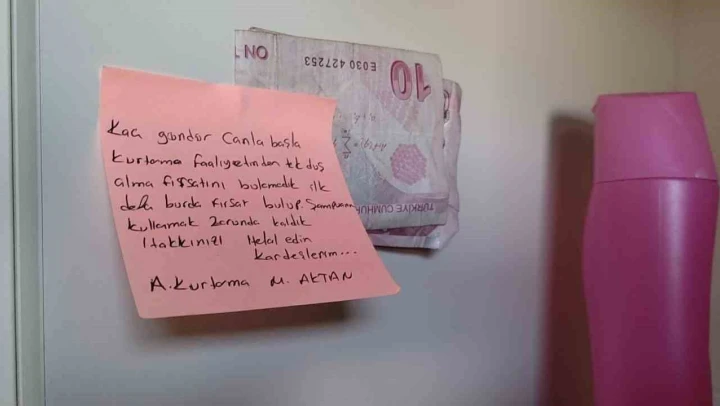 NO
E030 427253
10
TÜRKİYE CUMHU
Kaç gündür Canla başla
kurtarma faaliyetinden tk duş
alma fırsatını bulamadık ilk
defa burda fırsat bulup. Şampuan
kullanmak zorunda kaldık
Hakkınızı Helal edin
kardeşlerim...
A.Kurtarma M. AKTAN